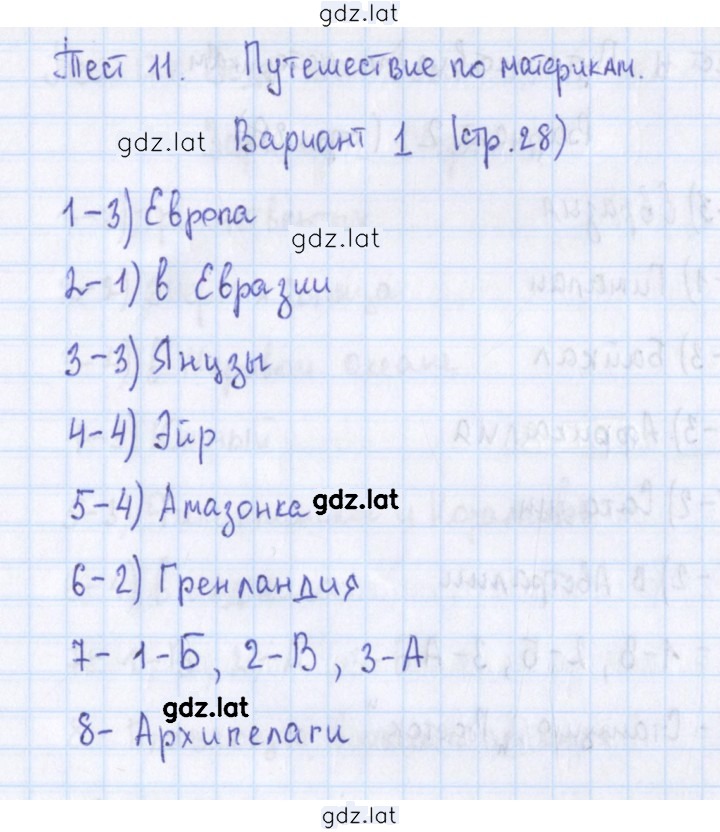 gdz.lat
Тест 11. Путешествие по материкам.
gdz.lat Вариант 1 (стр. 28)
1-3) Европа
gdz.lat
2-1) в Евразии
3-3) Янцзы
4-4) Эйр
5-4) Амазонка gdz.lat
6-2) Гренландия
7- 1-Б, 2-В, 3-А
gdz.lat
8- Архипелаги
gdz.lat